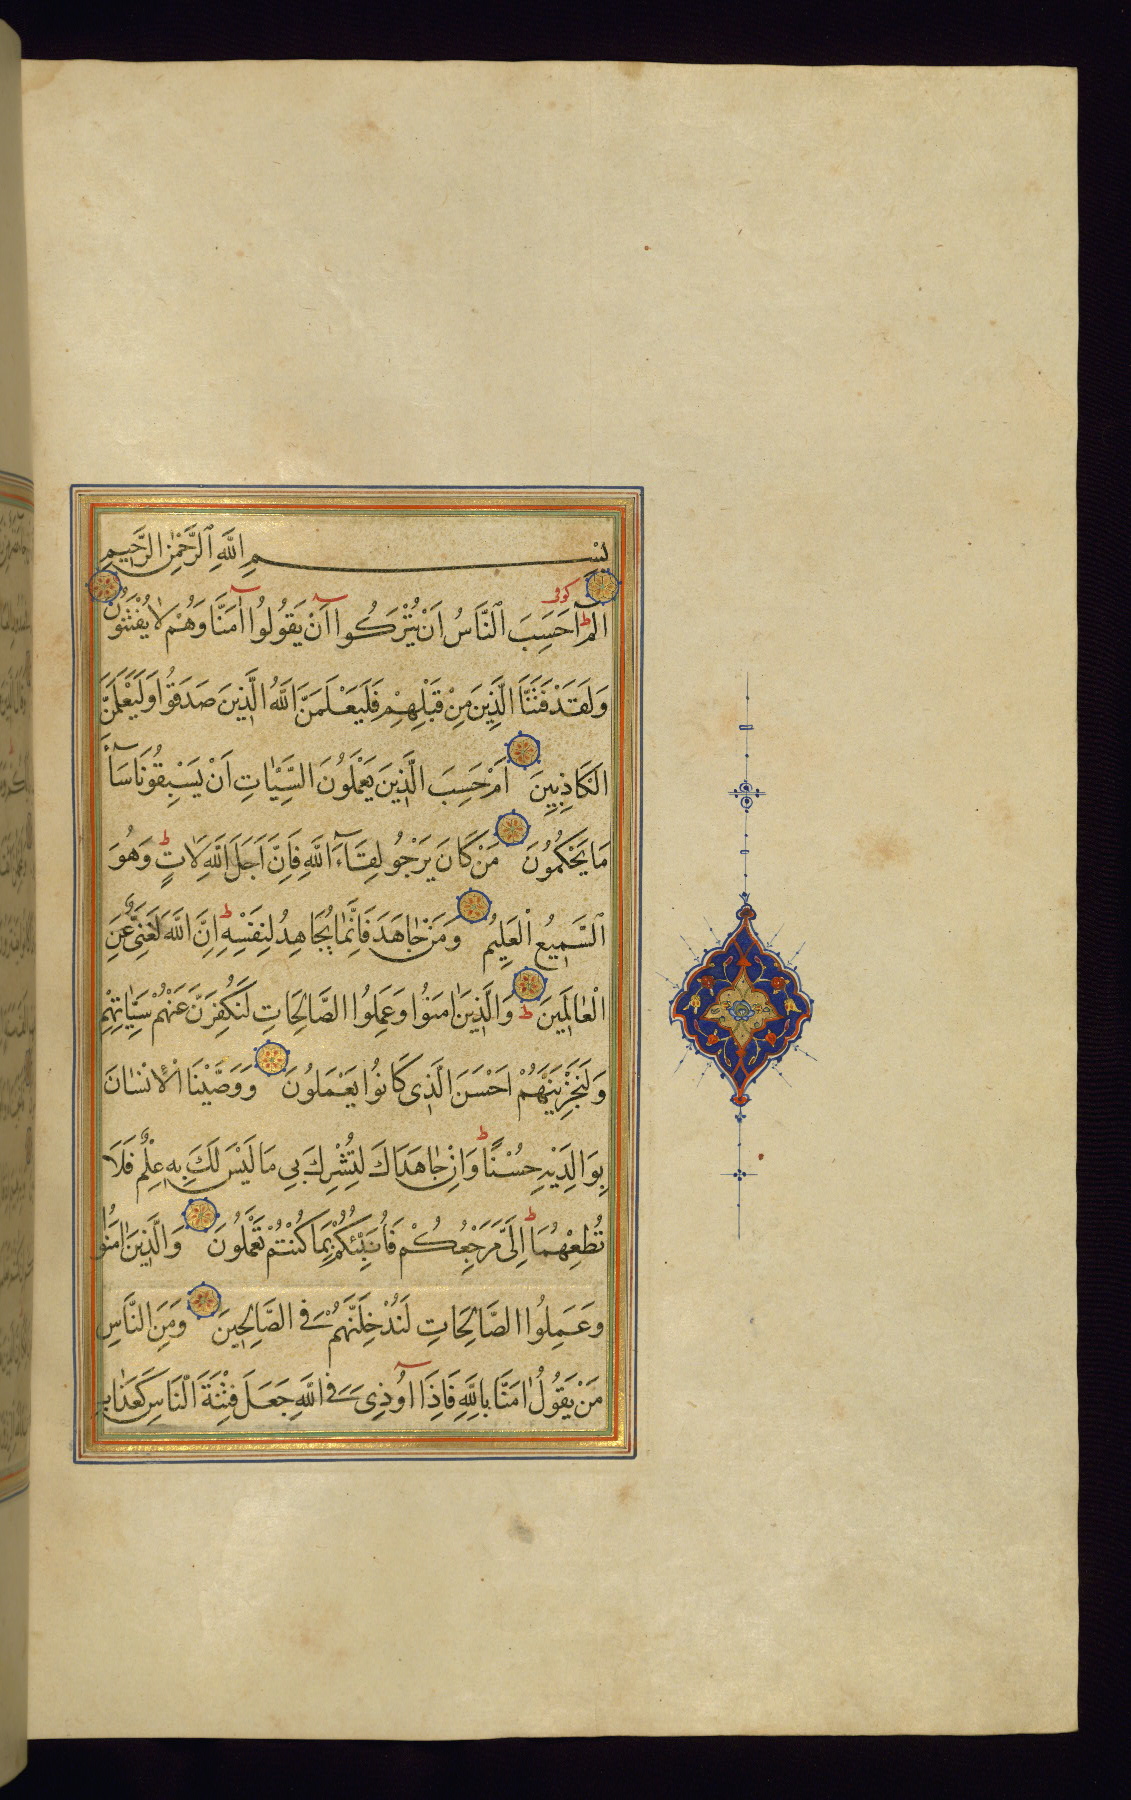 بِسْمِ اللَّهِ الرَّحْمٰنِ الرَّحِيمِ
كوفى
الٓمٓ ط اَحَسِبَ النَّاسُ اَنْ يُتْرَكُوا اَنْ يَقُولُوا اٰمَنَّا وَهُمْ لَا يُفْتَنُونَ
وَلَقَدْ فَتَنَّا الَّذِينَ مِنْ قَبْلِهِمْ فَلَيَعْلَمَنَّ اللَّهُ الَّذِينَ صَدَقُوا وَلَيَعْلَمَنَّ
الْكَاذِبِينَ اَمْ حَسِبَ الَّذِينَ يَعْمَلُونَ السَّيِّاٰتِ اَنْ يَسْبِقُونَا سَآءَ
مَا يَحْكُمُونَ مَنْ كَانَ يَرْجُو لِقَآءَ اللَّهِ فَاِنَّ اَجَلَ اللَّهِ لَاٰتٍ ط وَهُوَ
السَّمِيعُ الْعَلِيمُ وَمَنْ جَاهَدَ فَاِنَّمَا يُجَاهِدُ لِنَفْسِهِ ط اِنَّ اللَّهَ لَغَنِىٌّ عَنِ
الْعَالَمِينَ ط وَالَّذِينَ اٰمَنُوا وَعَمِلُوا الصَّالِحَاتِ لَنُكَفِّرَنَّ عَنْهُمْ سَيِّاٰتِهِمْ
وَلَنَجْزِيَنَّهُمْ اَحْسَنَ الَّذِى كَانُوا يَعْمَلُونَ وَوَصَّيْنَا الْاِنْسَانَ
بِوَالِدَيْهِ حُسْنًا ط وَاِنْ جَاهَدَاكَ لِتُشْرِكَ بِى مَا لَيْسَ لَكَ بِهِ عِلْمٌ فَلَا
تُطِعْهُمَا ط اِلَىَّ مَرْجِعُكُمْ فَاُنَبِّئُكُمْ بِمَا كُنْتُمْ تَعْمَلُونَ وَالَّذِينَ اٰمَنُوا
وَعَمِلُوا الصَّالِحَاتِ لَنُدْخِلَنَّهُمْ فِى الصَّالِحِينَ وَمِنَ النَّاسِ
مَنْ يَقُولُ اٰمَنَّا بِاللَّهِ فَاِذَا اُوذِىَ فِى اللَّهِ جَعَلَ فِتْنَةَ النَّاسِ كَعَذَابِ